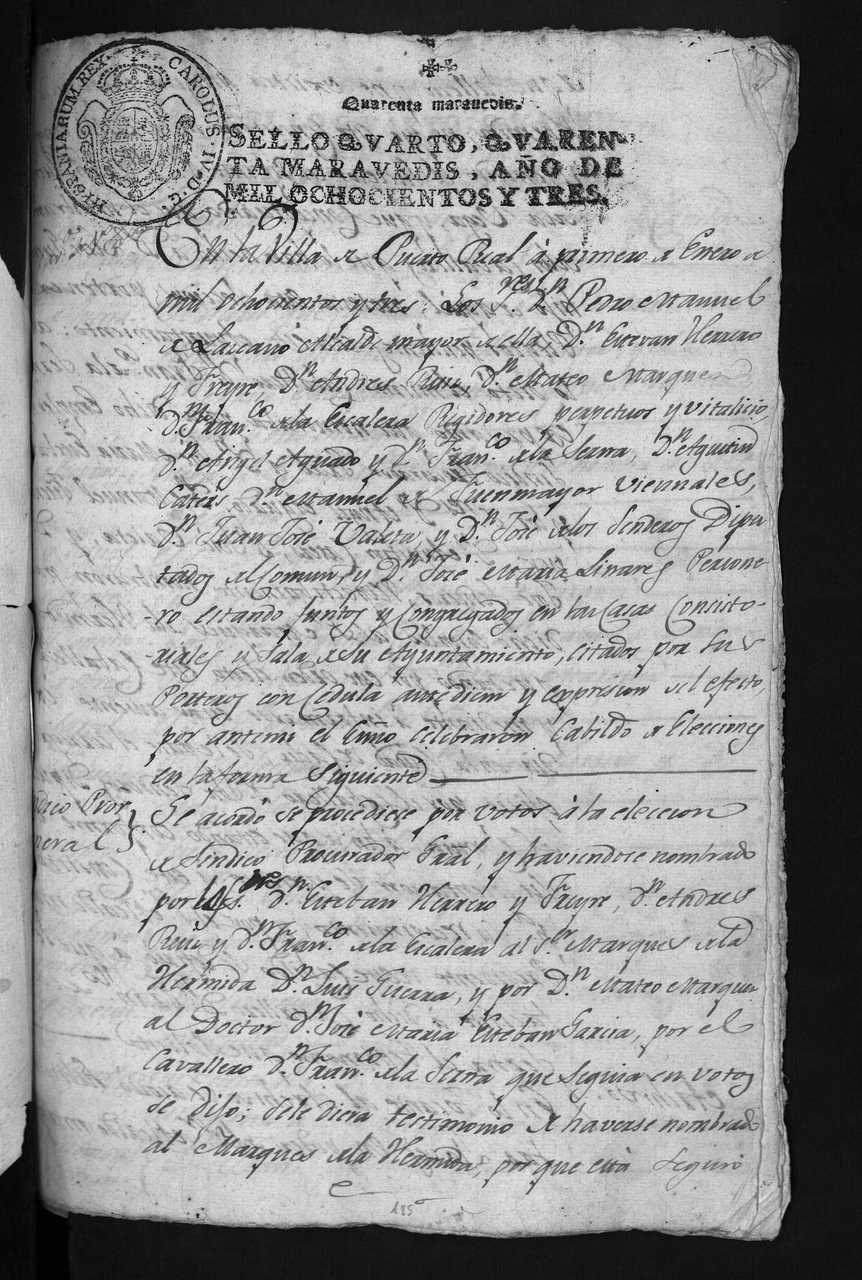 HISPANIARUM REX
CAROLUS IV D. G.
Quarenta marauedis.
SELLO QVARTO, QVAREN-
TA MARAVEDIS, AÑO DE
MIL OCHOCIENTOS Y TRES.
En la Villa de Puerto Real á primero de Enero de
mil ochocientos y tres: Los S.res D.n Pedro Manuel
de Lazcano Alcalde mayor de ella, D.n Estevan Herrero
y Freyre D.n Andres Ruiz, D.n Mateo Marquez
D.n Fran.co de la Escalera Regidores perpetuos y vitalicio,
D.n Angel Aguado y D.n Fran.co de la Serna, D.n Agustin
D.n Manuel de Fuenmayor Viennales,
D.n Juan José Valera, y D.n José de los Senderos Dipu
tados del Comun, y D.n José Maria Linares Persone-
ro estando Juntos y Congregados en las Casas Consisto-
riales y Sala de Su Ayuntamiento, citados por Sus
Porteros con Cedula antediem y expresion del efecto,
por antemi el Esñno Celebraron Cabildo de Elecciones
en la forma Siguiente
ndico Pror
neral
Se acordó se procediese por votos á la eleccion
de Sindico Procurador Grãl, y haviendose nombrado
por los S.res D.n Esteban Herrero y Freyre, D.n Andres
Ruiz y D.n Fran.co de la Escalera al S.r Marques de la
Hermida D.n Luis Guerra, y por D.n Mateo Marquez
al Doctor D.n José Maria Esteban Garcia, por el
Cavallero D.n Fran.co de la Serna que Seguia en votos
se dijo; sele diera testimonio de haverse nombrado
al Marques de la Hermida, por que está Seguro
185